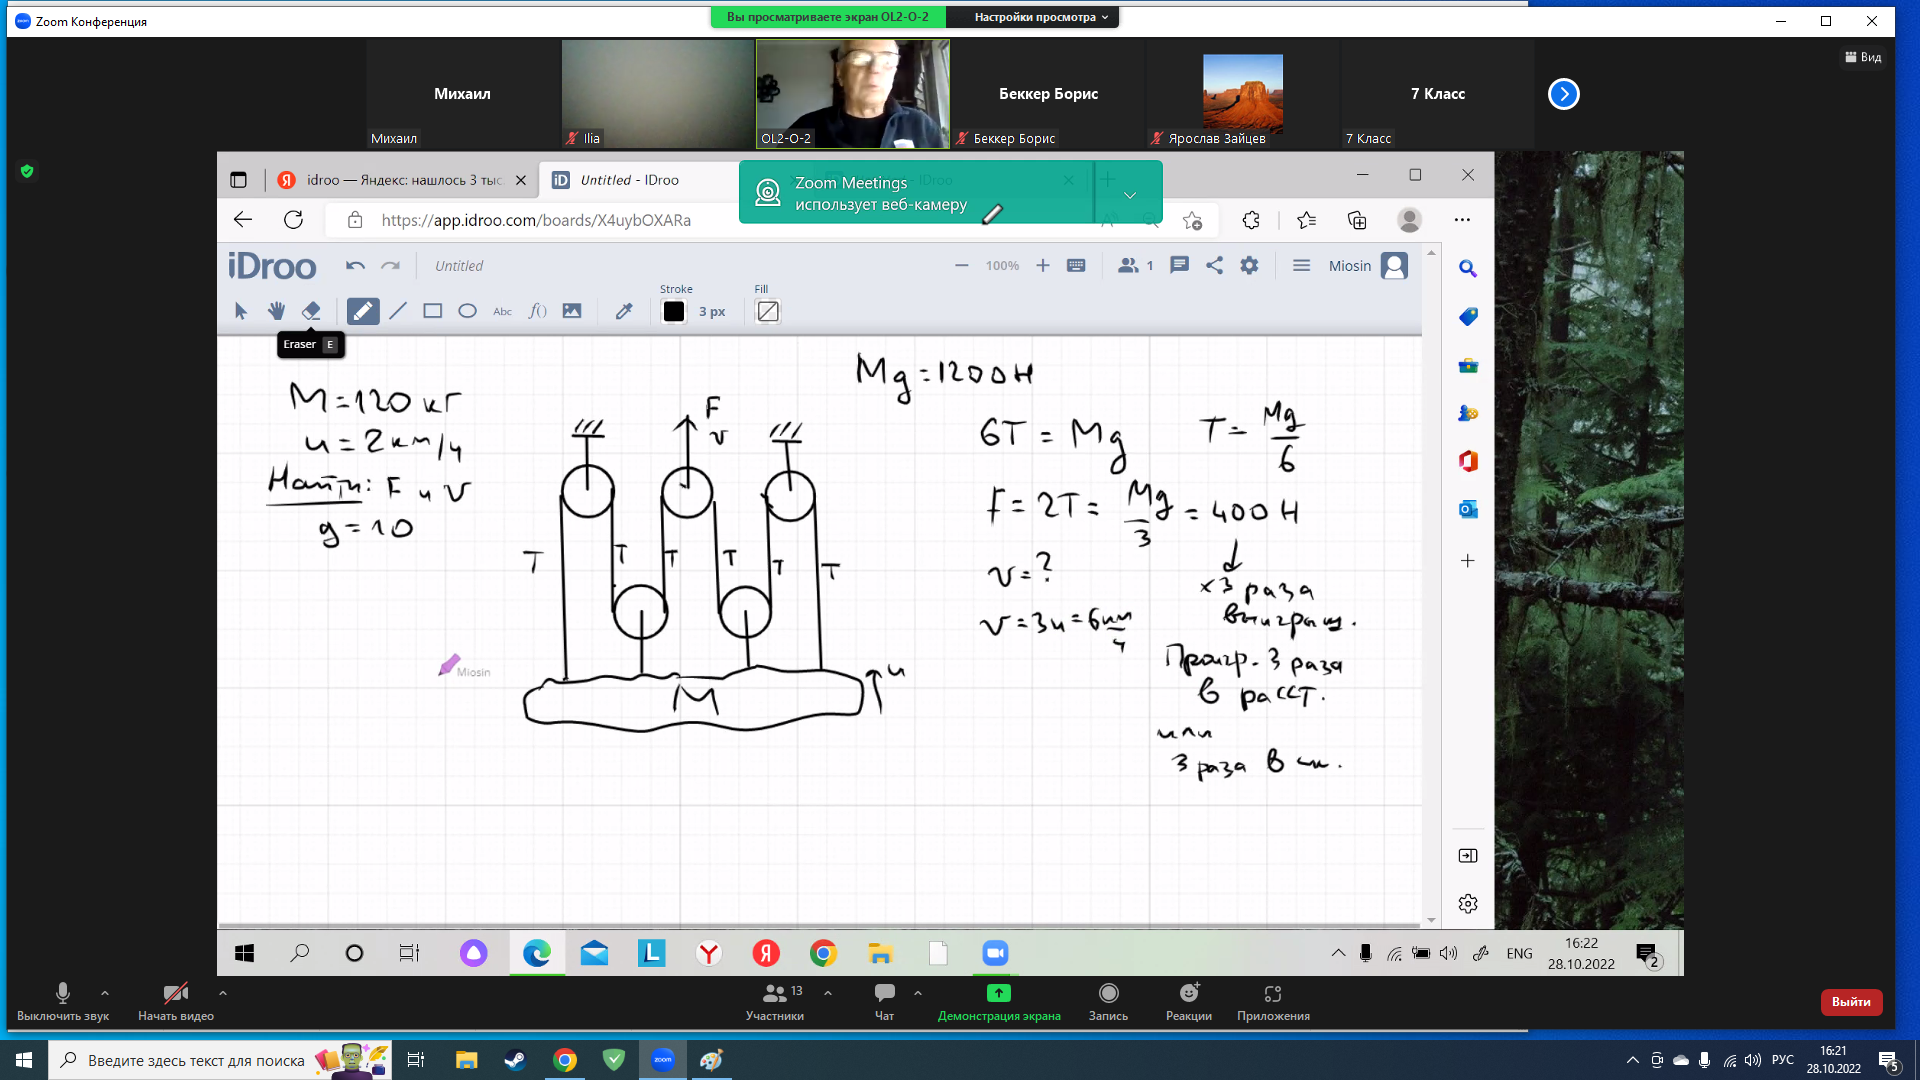 Zoom Конференция
Вы просматриваете экран OL2-O-2
Настройки просмотра
Вид
Михаил
Беккер Борис
7 Класс
Михаил
Ilia
OL2-O-2
Беккер Борис
Ярослав Зайцев
7 Класс
idroo — Яндекс: нашлось 3 тыс.
Untitled - IDroo
Zoom Meetings
использует веб-камеру
https://app.idroo.com/boards/X4uybOXARa
iDroo
Untitled
100%
1
Miosin
Abc
f()
Stroke
3 px
Fill
Eraser E
M = 120 кг
u = 2 км/ч
Найти: F и v
g = 10
F
v
T T T T T T
M
u
Miosin
Mg = 1200 Н
6T = Mg
T = Mg/6
F = 2T = Mg/3 = 400 Н
v = ?
v = 3u = 6 км/ч
x3 раза
выигрыш.
Проигр. 3 раза
в расст.
или
3 раза в ск.
ENG
16:22
28.10.2022
2
Выключить звук
Начать видео
13
Участники
Чат
Демонстрация экрана
Запись
Реакции
Приложения
Выйти
Введите здесь текст для поиска
zoom
РУС
16:21
28.10.2022
5